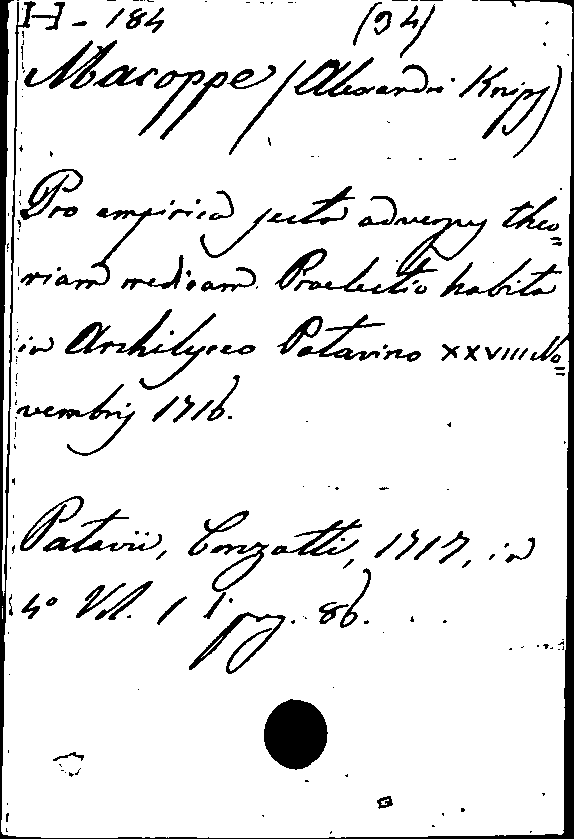 H - 184 (34)
Macoppe (Alexandri Knips)
Pro empirica secta adversus theo=
riam medicam Praelectio habita
in Archilyceo Patavino XXVIII No=
vembris 1716.
Patavii, Conzatti, 1717, in
4° Vol. 1 pag. 86.